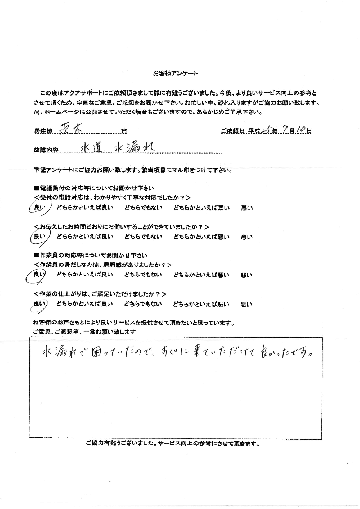 お客様アンケート
この度はアクアサポートにご依頼頂きまして誠に有難うございました。今後、より良いサービス向上の参考と
させて頂くため、率直なご意見、ご感想をお聞かせ下さい。お忙しい中、恐れ入りますがご協力お願い致します。
尚、ホームページに公開させていただく場合もございますので、あらかじめご了承下さい。
お客様 様 ご依頼日 平成 年 7月10日
依頼内容 水道 水漏れ
下記アンケートにご協力お願い致します。該当項目でマル印をつけて下さい。
■電話受付の対応等についてお聞かせ下さい
<受付の電話対応は、わかりやすく丁寧な対応でしたか?>
良い どちらかといえば良い どちらでもない どちらかといえば悪い 悪い
<お伝えしたお時間どおりにお伺いすることができていましたか?>
良い どちらかといえば良い どちらでもない どちらかといえば悪い 悪い
■作業員の対応等についてお聞かせ下さい
<作業員の身だしなみは、清潔感がありましたか?>
良い どちらかといえば良い どちらでもない どちらかといえば悪い 悪い
<作業の仕上がりは、ご満足いただけましたか?>
良い どちらかといえば良い どちらでもない どちらかといえば悪い 悪い
お客様のお声をもとにより良いサービスを提供させて頂きたいと思っています。
ご意見、ご感想等、一言お願い致します
水漏れで困っていたので、すぐに来ていただけて良かったです。
ご協力有難うございました。サービス向上の参考にさせて頂きます。